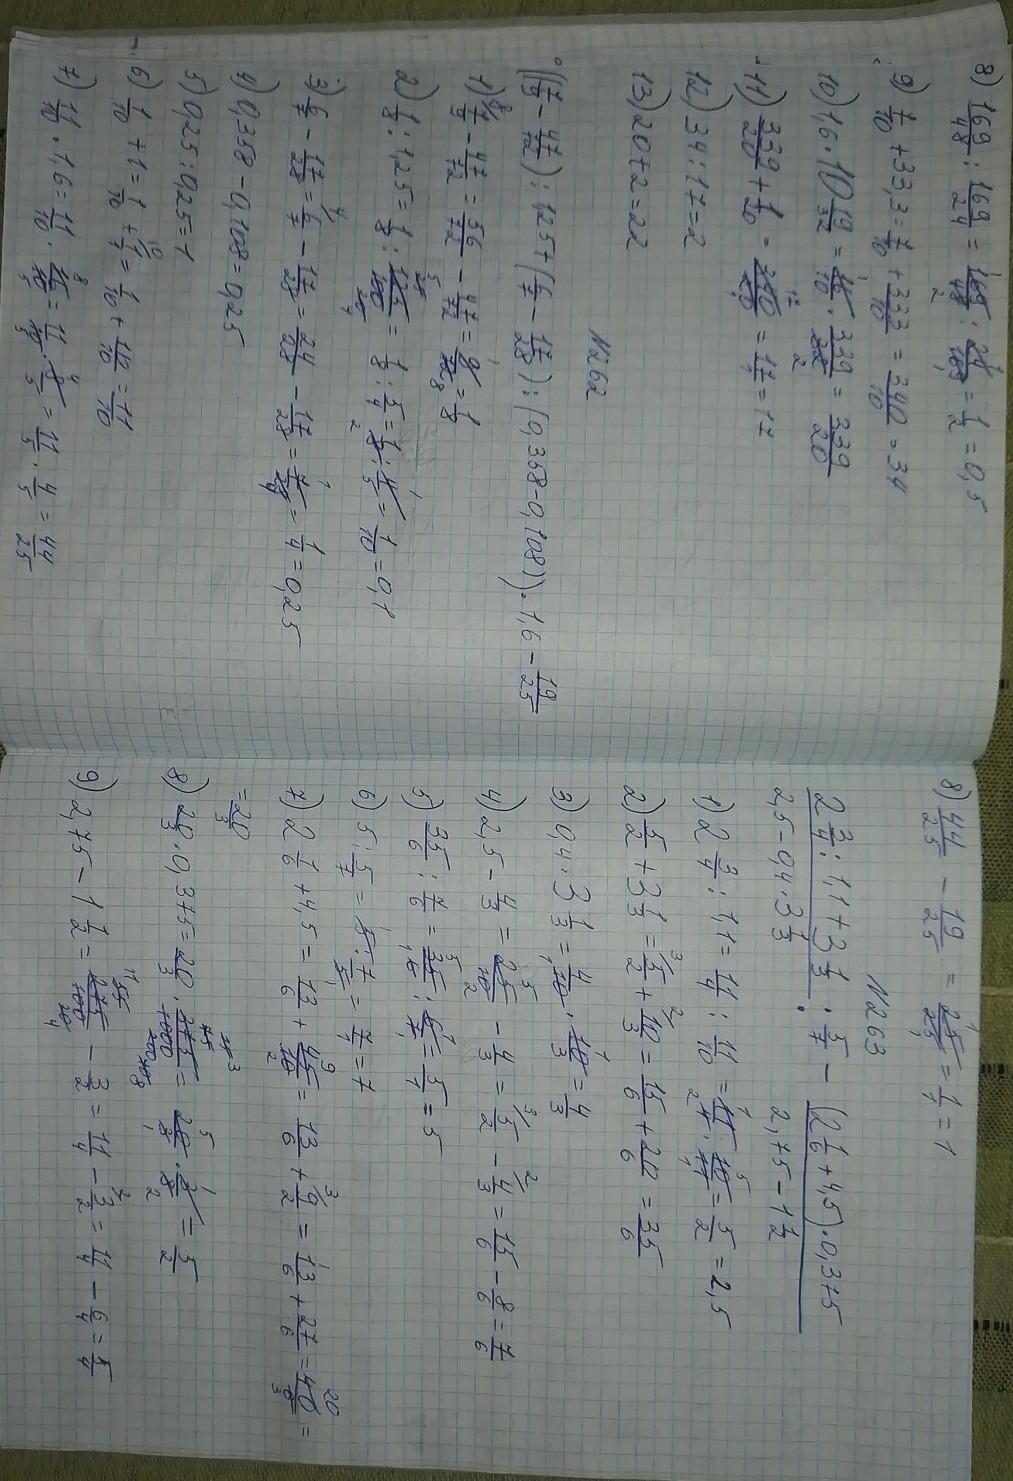 8) 169/48 : 169/24 = 169/48 · 24/169 = 1/2 = 0,5
9) 7/10 + 33,3 = 7/10 + 333/10 = 340/10 = 34
10) 1,6 · 10 19/32 = 16/10 · 339/32 = 339/20
11) 339/20 + 1/20 = 340/20 = 17/1 = 17
12) 34 : 17 = 2
13) 20 + 2 = 22
N262
((7/9 - 47/72) : 1,25 + (6/7 - 17/28) : (0,358 - 0,108)) · 1,6 - 19/25
1) 7/9 - 47/72 = 56/72 - 47/72 = 9/72 = 1/8
2) 1/8 : 1,25 = 1/8 : 125/100 = 1/8 : 5/4 = 1/8 · 4/5 = 1/10 = 0,1
3) 6/7 - 17/28 = 6/7 - 17/28 = 24/28 - 17/28 = 7/28 = 1/4 = 0,25
4) 0,358 - 0,108 = 0,25
5) 0,25 : 0,25 = 1
6) 1/10 + 1 = 1/10 + 1/1 = 1/10 + 10/10 = 11/10
7) 11/10 · 1,6 = 11/10 · 16/10 = 11/10 · 8/5 = 11/5 · 4/5 = 44/25
8) 44/25 - 19/25 = 25/25 = 1/1 = 1
N263
2 3/4 : 1,1 + 3 1/3 / 2,5 - 0,4 · 3 1/3 : 5/7 - (2 1/6 + 4,5) · 0,375 / 2,75 - 1 1/2
1) 2 3/4 : 1,1 = 11/4 : 11/10 = 11/4 · 10/11 = 5/2 = 2,5
2) 5/2 + 3 1/3 = 5/2 + 10/3 = 15/6 + 20/6 = 35/6
3) 0,4 · 3 1/3 = 4/10 · 10/3 = 4/3
4) 2,5 - 4/3 = 25/10 - 4/3 = 5/2 - 4/3 = 15/6 - 8/6 = 7/6
5) 35/6 : 7/6 = 35/6 · 6/7 = 5/1 = 5
6) 5 : 5/7 = 5 · 7/5 = 7/1 = 7
7) 2 1/6 + 4,5 = 13/6 + 45/10 = 13/6 + 9/2 = 13/6 + 27/6 = 40/6 =
= 20/3
8) 20/3 · 0,375 = 20/3 · 375/1000 = 20/3 · 3/8 = 5/2
9) 2,75 - 1 1/2 = 275/100 - 3/2 = 11/4 - 3/2 = 11/4 - 6/4 = 5/4